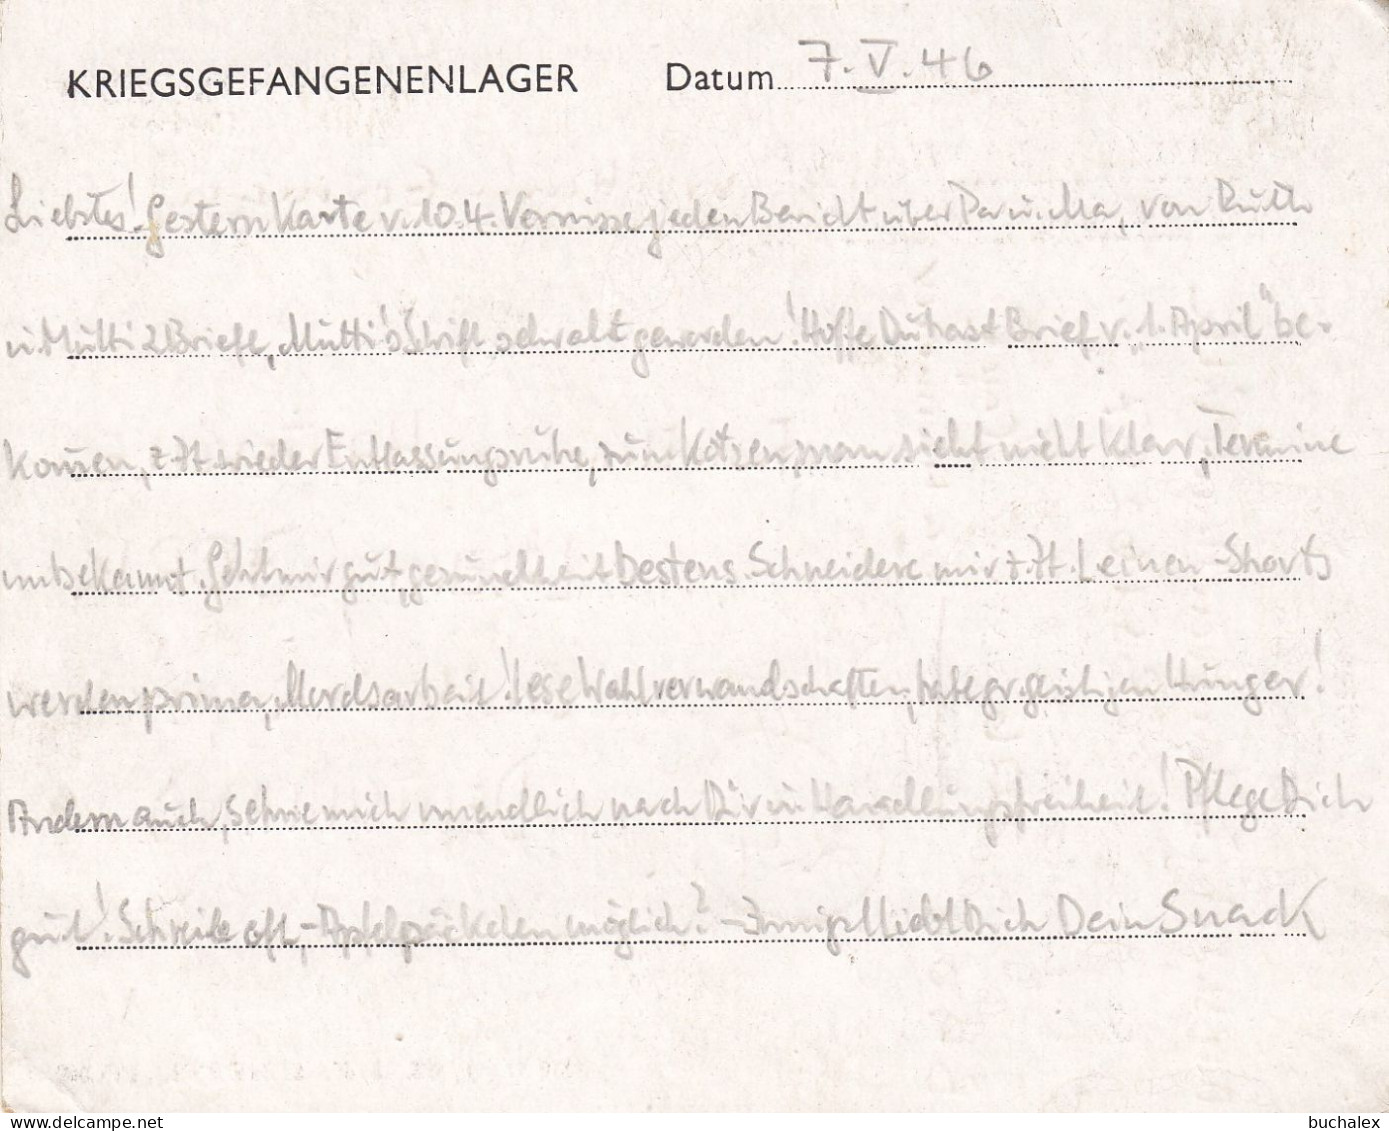 KRIEGSGEFANGENENLAGER Datum 7.V.46
Liebstes! Gestern Karte v. 10.4. Vermisse jeden Bericht über Pa u. Ma, von Ruth
u. Mutti 2 Briefe, Mutti's Schrift sehr alt geworden! Hoffe Du hast Brief v. "1. April" be-
kommen, z. Zt. wieder Entlassungsruhe, zum Kotzen, man sieht nicht klar, Termine
unbekannt. Geht mir gut, gesundheitl. bestens. Schneidere mir z. Zt. Leinen-Shorts
werden prima, Mordsarbeit! lese Wahlverwandschaften, habe gr. geistigen Hunger!
Andern auch, Sehne mich unendlich nach Dir u. Handlungsfreiheit! Pflege Dich
gut! Schreibe oft, - Apfelpäckchen möglich? - Innigst liebt Dich Dein Snack
buchalex